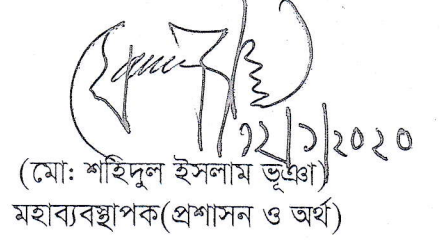 ১২/১/২০২০
(মোঃ শহিদুল ইসলাম ভূঞা)
মহাব্যবস্থাপক(প্রশাসন ও অর্থ)